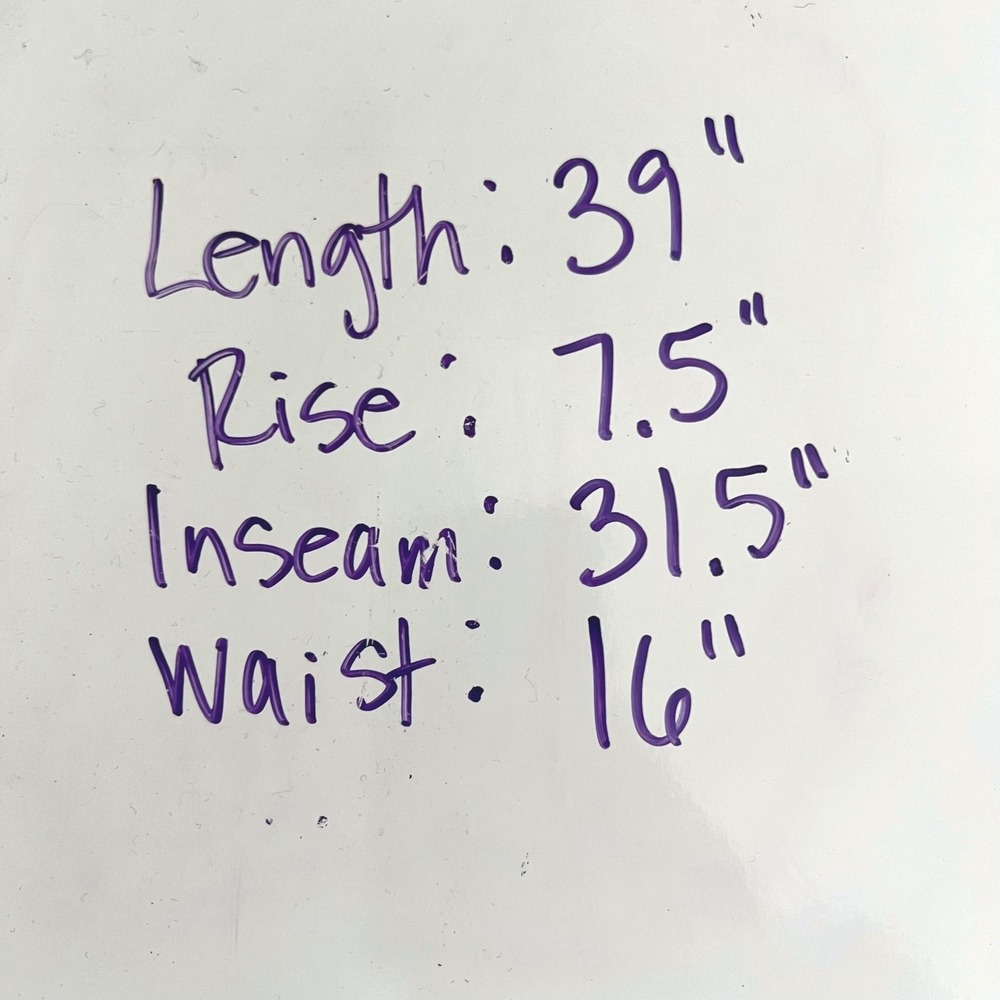 Length: 39"
Rise: 7.5"
Inseam: 31.5"
Waist: 16"